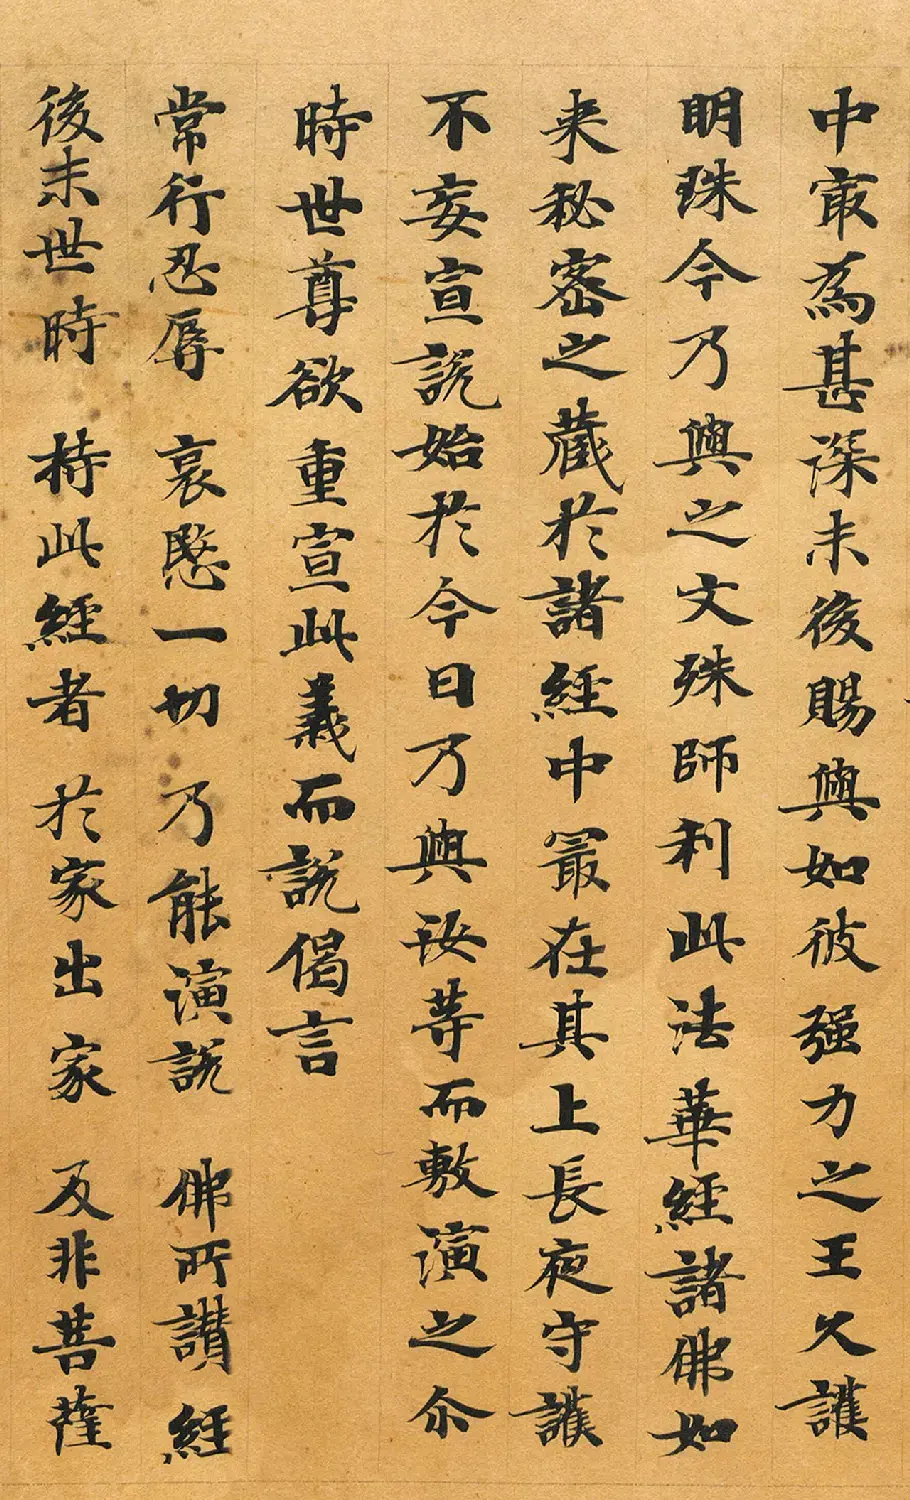 中冣為甚深末後賜與如彼强力之王久護
明珠今乃與之文殊師利此法華經諸佛如
来秘密之藏於諸經中冣在其上長夜守護
不妄宣說始於今日乃與汝等而敷演之尒
時世尊欲重宣此義而說偈言
常行忍辱 哀愍一切 乃能演說 佛所讃經
後末世時 持此經者 於家出家 及非菩薩